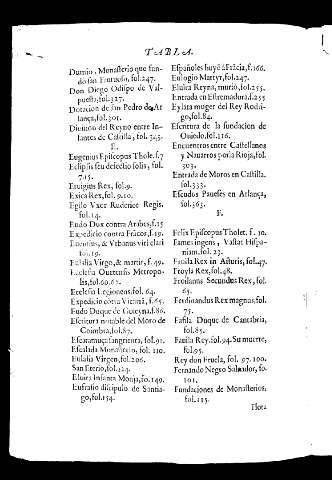 TABLA.
Dumio, Monasterio que fun-
dó san Frutuoso, fol.247.
Don Diego Odispo de Val-
puesta, fol.327.
Dotacion de san Pedro de Ar
lança, fol.301.
Diuision del Reyno entre In-
fantes de Castilla, fol.345.
E.
Eugenius Episcopus Thole.f.7
Eclipsis seu defectio solis, fol.
7.15.
Eruigius Rex, fol.9.
Exica Rex, fol.9.10.
Egilo Vxor Ruderice Regis,
fol.14.
Eudo Dux contra Arabes, f.15
Expedicio contra Fràcos, f.19.
& Vrbanus viri clari
fol.19.
Eulalia Virgo, & martir, f.49.
Ecclesia Ouetensis Metropo-
lis, fol.60.62.
Ecclesia Legionens.fol. 64.
Expedicio côtra Viscaiâ, f.65.
Eudo Duque de Guiayna, f.86.
Escritura notable del Moro de
Coimbra, fol.87.
Escaramuça sangrienta, fol.91.
Escalada Monasterio, fol. 110.
Eulalia Virgen, fol.206.
San Eterio, fol.124.
Eluira Infanta Monja, fo.149.
Eufrasio discipulo de Santia-
go, fol.154.
Españoles huyô á Frácia, f.166.
Eulogio Martyr, fol.247.
Eluira Reyna, murió, fol.255.
Entrada en Estremadura, f.255
Eylata muger del Rey Rodri-
go, fol.84.
Escritura de la fundacion de
Ouiedo, fol.116.
Encuentros entre Castellanos
y Nauarros por la Rioja, fol.
303.
Entrada de Moros en Castilla.
fol.333.
Escudos Paueses en Arlança,
fol.363.
F.
Felix Episcopus Tholet. f. 30.
Fames ingens, Vastat Hispa-
niam, fol.23.
Fauila Rex in Asturis, fol.47.
Froyla Rex, fol.48.
Froilanus Secundus Rex, fol.
65.
Ferdinandus Rex magnus, fol.
75.
Fafila Duque de Cantabria,
fol.85.
Fauila Rey. fol.94. Su muerte,
fol.95.
Rey don Fruela, fol. 97. 100.
Fernando Negro Saluador, fo.
101.
Fundaciones de Monasterios,
fol.115.
Flota